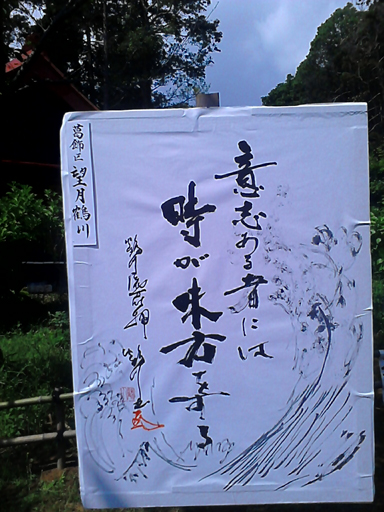 意志ある者には
時が味方する
葛飾区 望月鶴川